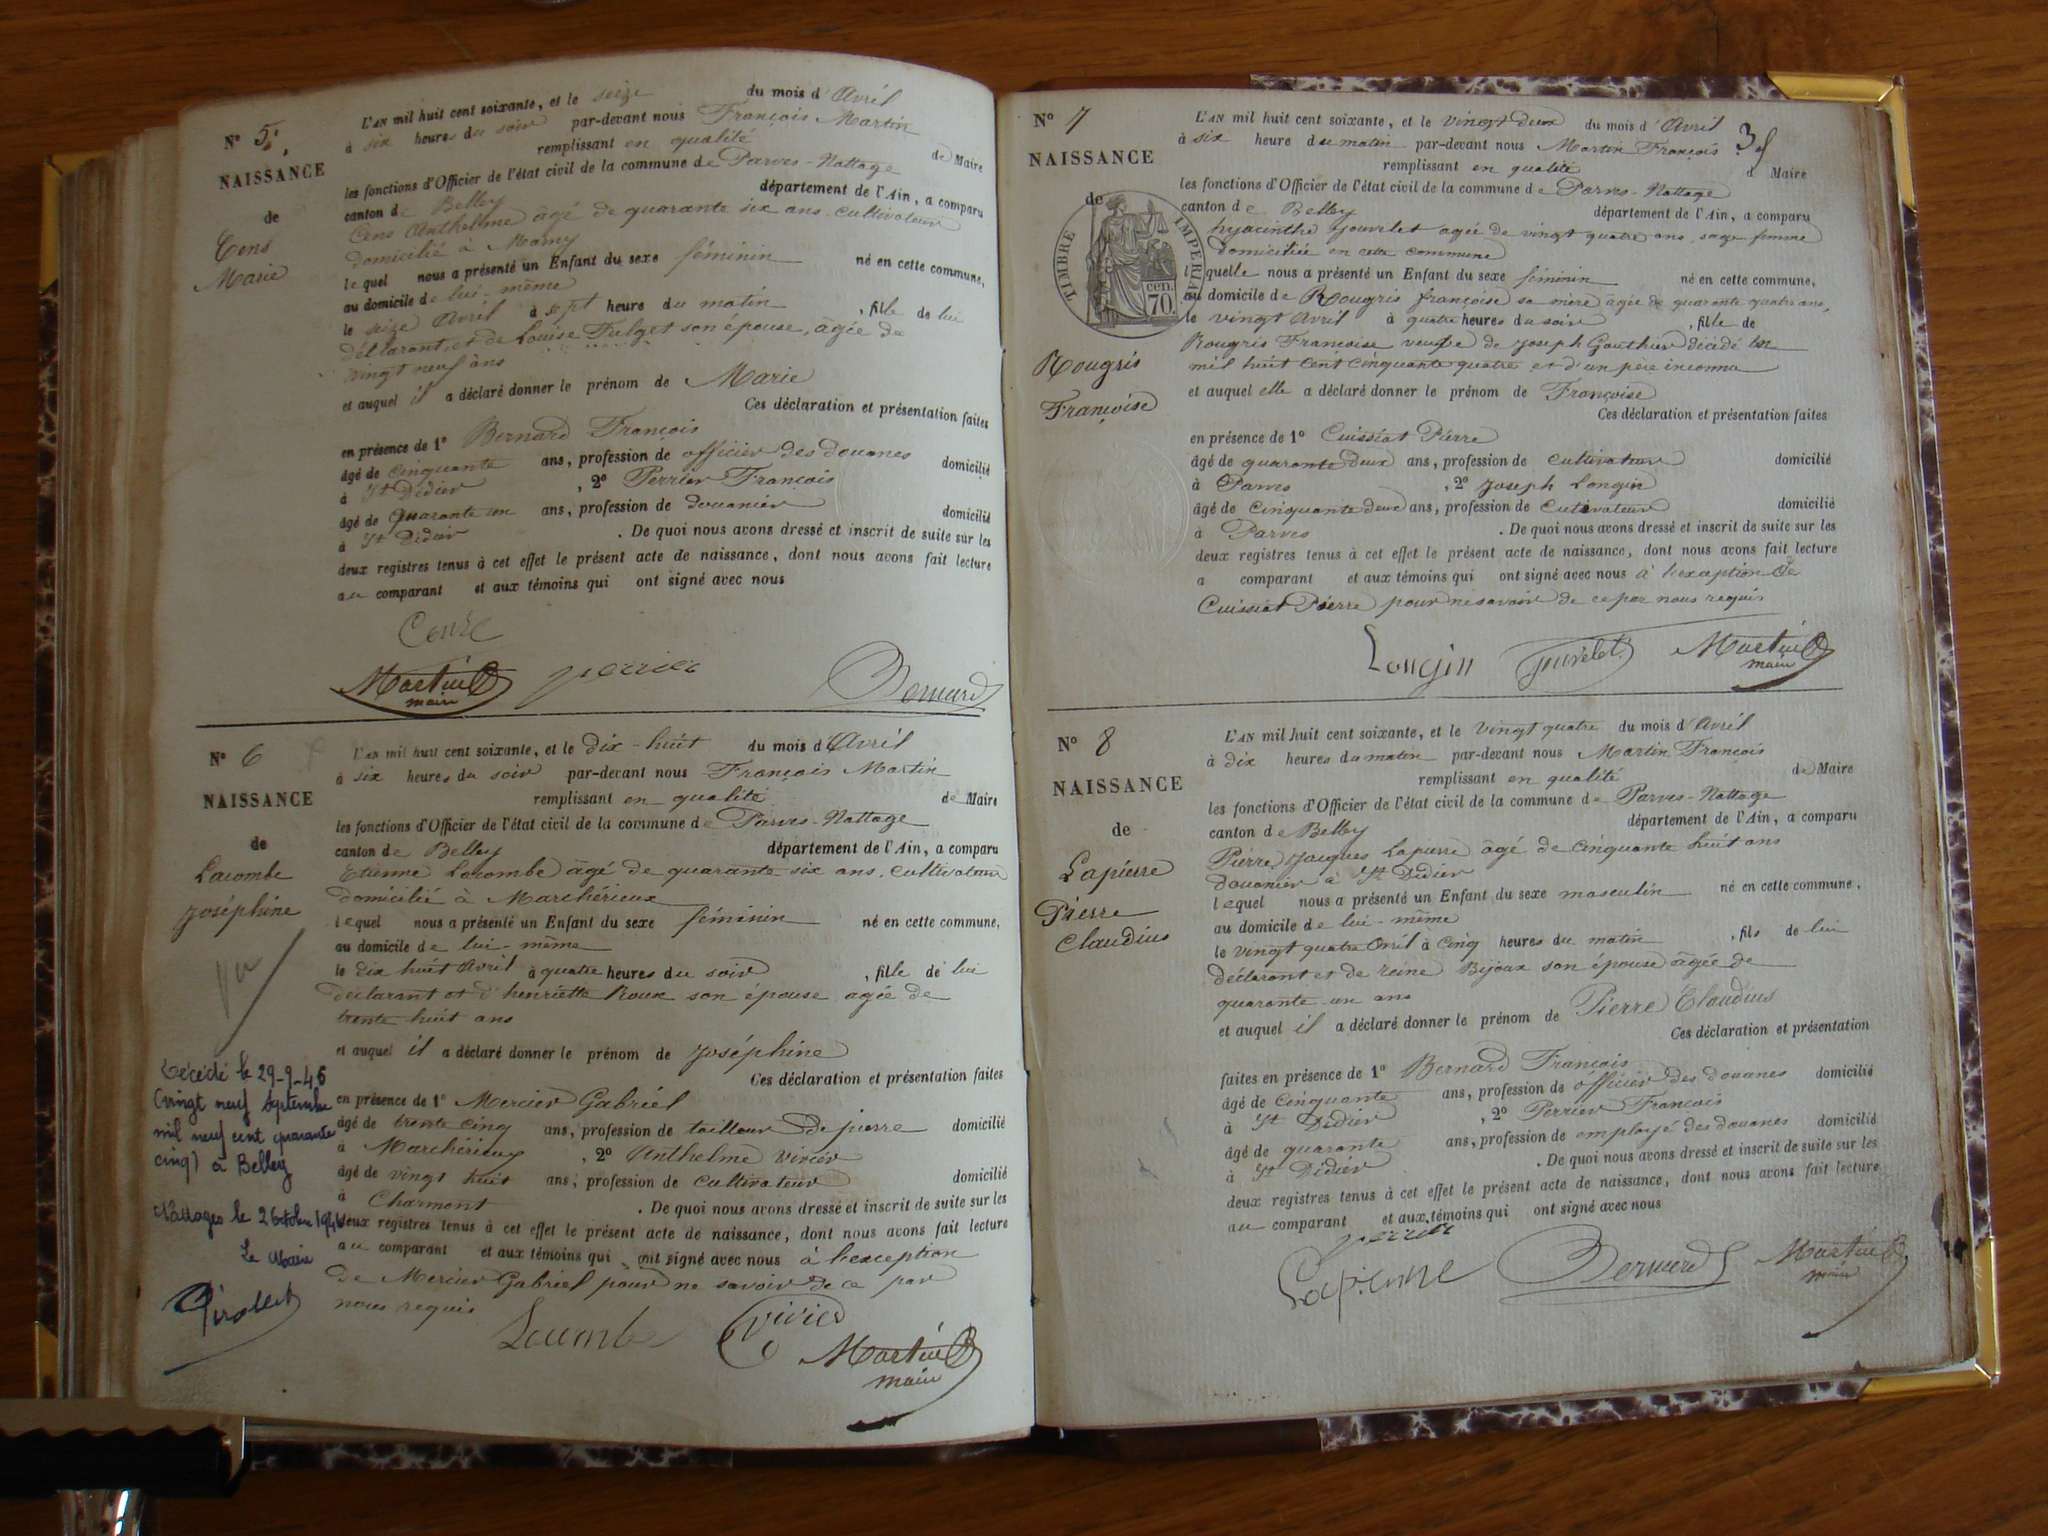 N° 5.
NAISSANCE
de
Cens
Marie
L'AN mil huit cent soixante, et le seize du mois d'Avril
à six heures du soir par-devant nous François Martin
remplissant en qualité de Maire
les fonctions d'Officier de l'état civil de la commune de Parves-Nattage
canton de Belley département de l'Ain, a comparu
Cens Anthelme âgé de quarante six ans cultivateur
domicilié à
lequel nous a présenté un Enfant du sexe féminin né en cette commune,
au domicile de lui-même
le seize Avril à sept heure du matin, fille de lui
déclarant, et de Louise son épouse, âgée de
vingt neuf ans
et auquel il a déclaré donner le prénom de Marie
Ces déclaration et présentation faites
en présence de 1° Bernard François
âgé de cinquante ans, profession de officier des douanes domicilié
à St Didier, 2° Perrier François
âgé de quarante un ans, profession de douanier domicilié
à St Didier. De quoi nous avons dressé et inscrit de suite sur les
deux registres tenus à cet effet le présent acte de naissance, dont nous avons fait lecture
au comparant et aux témoins qui ont signé avec nous
Martin
maire
perrier
Bernard
N° 6
NAISSANCE
de
Lacombe
Joséphine
vu
Décédé le 29-9-45
(vingt neuf Septembre
mil neuf cent quarante
cinq) à Belley
Nattages le 2 Octobre
Le Maire
L'AN mil huit cent soixante, et le dix-huit du mois d'Avril
à six heures du soir par-devant nous François Martin
remplissant en qualité de Maire
les fonctions d'Officier de l'état civil de la commune de Parves-Nattage
canton de Belley département de l'Ain, a comparu
Etienne Lacombe âgé de quarante six ans, cultivateur
domicilié à Marchérieux
lequel nous a présenté un Enfant du sexe féminin né en cette commune,
au domicile de lui-même
le dix huit Avril à quatre heures du soir, fille de lui
déclarant et d'henriette Roux son épouse agée de
trente huit ans
et auquel il a déclaré donner le prénom de Joséphine
Ces déclaration et présentation faites
en présence de 1° Mercier Gabriel
âgé de trente cinq ans, profession de tailleur de pierre domicilié
à Marchérieux, 2° Anthelme Vivier
âgé de vingt huit ans, profession de cultivateur domicilié
à Charmont. De quoi nous avons dressé et inscrit de suite sur les
deux registres tenus à cet effet le présent acte de naissance, dont nous avons fait lecture
au comparant et aux témoins qui ont signé avec nous à l'exception
de Mercier Gabriel pour ne savoir de ce par
nous requis
Lacombe
Vivier
Martin
maire
N° 7
NAISSANCE
de
TIMBRE IMPERIAL
cen.
70.
Rougris
Françoise
L'AN mil huit cent soixante, et le vingt deux du mois d'Avril
à six heure du matin par-devant nous Martin François
remplissant en qualité d Maire
les fonctions d'Officier de l'état civil de la commune de Parves-Nattage
canton de Belley département de l'Ain, a comparu
hyacinthe Jouvelet agée de vingt quatre ans, sage femme
domiciliée en cette commune
lequelle nous a présenté un Enfant du sexe féminin né en cette commune,
au domicile de Rougris françoise sa mère âgée de quarante quatre ans,
le vingt Avril à quatre heures du soir, fille de
Rougris Françoise veuve de Joseph Gouthier décédé en
mil huit cent cinquante quatre et d'un père inconnu
et auquel elle a déclaré donner le prénom de Françoise
Ces déclaration et présentation faites
en présence de 1° Cuissiat Pierre
âgé de quarante deux ans, profession de cultivateur domicilié
à Parves, 2° Joseph Longin
âgé de cinquante deux ans, profession de cultivateur domicilié
à Parves. De quoi nous avons dressé et inscrit de suite sur les
deux registres tenus à cet effet le présent acte de naissance, dont nous avons fait lecture
a comparant et aux témoins qui ont signé avec nous à l'exaption de
Cuissiat Pierre pour ne savoir de ce par nous requis
Longin
Jouvelet
Martin
maire
N° 8
NAISSANCE
de
Lapierre
Pierre
Claudius
L'AN mil huit cent soixante, et le vingt quatre du mois d'Avril
à dix heures du matin par-devant nous Martin François
remplissant en qualité de Maire
les fonctions d'Officier de l'état civil de la commune de Parves-Nattage
canton de Belley département de l'Ain, a comparu
Pierre Jacques Lapierre âgé de cinquante huit ans
douanier à St Didier
lequel nous a présenté un Enfant du sexe masculin né en cette commune,
au domicile de lui-même
le vingt quatre Avril à cinq heures du matin, fils de lui
déclarant et de reine Bijoux son épouse âgée de
quarante-un ans
et auquel il a déclaré donner le prénom de Pierre Claudius
Ces déclaration et présentation
faites en présence de 1° Bernard François
âgé de cinquante ans, profession de officier des douanes domicilié
à St Didier, 2° Perrier François
âgé de quarante ans, profession de employé des douanes domicilié
à St Didier. De quoi nous avons dressé et inscrit de suite sur les
deux registres tenus à cet effet le présent acte de naissance, dont nous avons fait lecture
au comparant et aux témoins qui ont signé avec nous
perrier
Lapierre
Bernard
Martin
maire